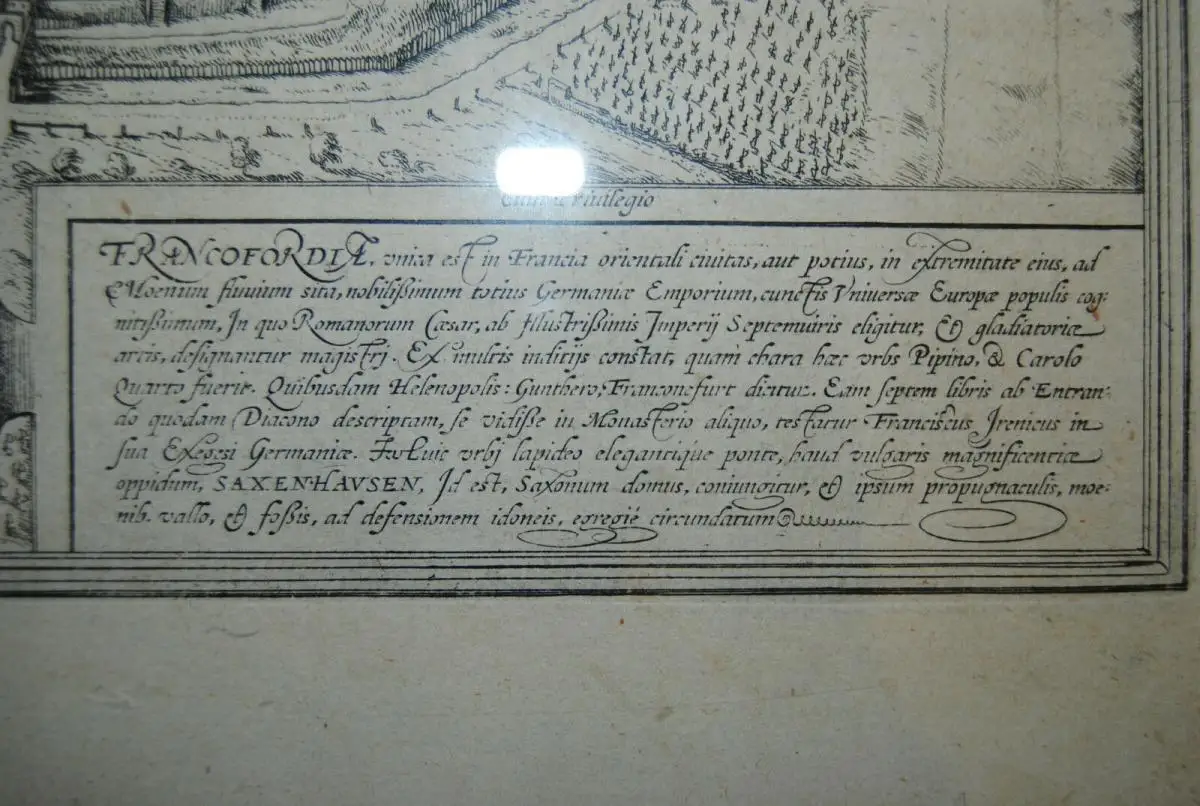 Cum Priuilegio
FRANCOFORDIÆ, vnica est in Francia orientali ciuitas, aut potius, in extremitate eius, ad
Moenum fluuium sita, nobilißimum totius Germaniæ Emporium, cunctis Vniversæ Europæ populis cog:
nitißimum, In quo Romanorum Cæsar, ab Illustrißimis Imperij Septemuiris eligitur, & gladiatoriæ
artis, designantur magistri. Ex multis inditijs constat, quam chara hæc vrbs Pipino, & Carolo
Quarto fuerit. Quibusdam Helenopolis: Gunthero, Franconefurt dicitur. Eam septem libris ab Entran:
do quodam Diacono descriptam, se vidiße in Monasterio aliquo, testatur Franciscus Irenicus in
sua Exegesi Germaniæ. Huic vrbj lapideo elegantique ponte, haud vulgaris magnificentiæ
oppidum, SAXENHAVSEN, Id est, Saxonum domus, coniungitur, & ipsum propugnaculis, moe-
nib. vallo, & foßis, ad defensionem idoneis, egregiè circundatum